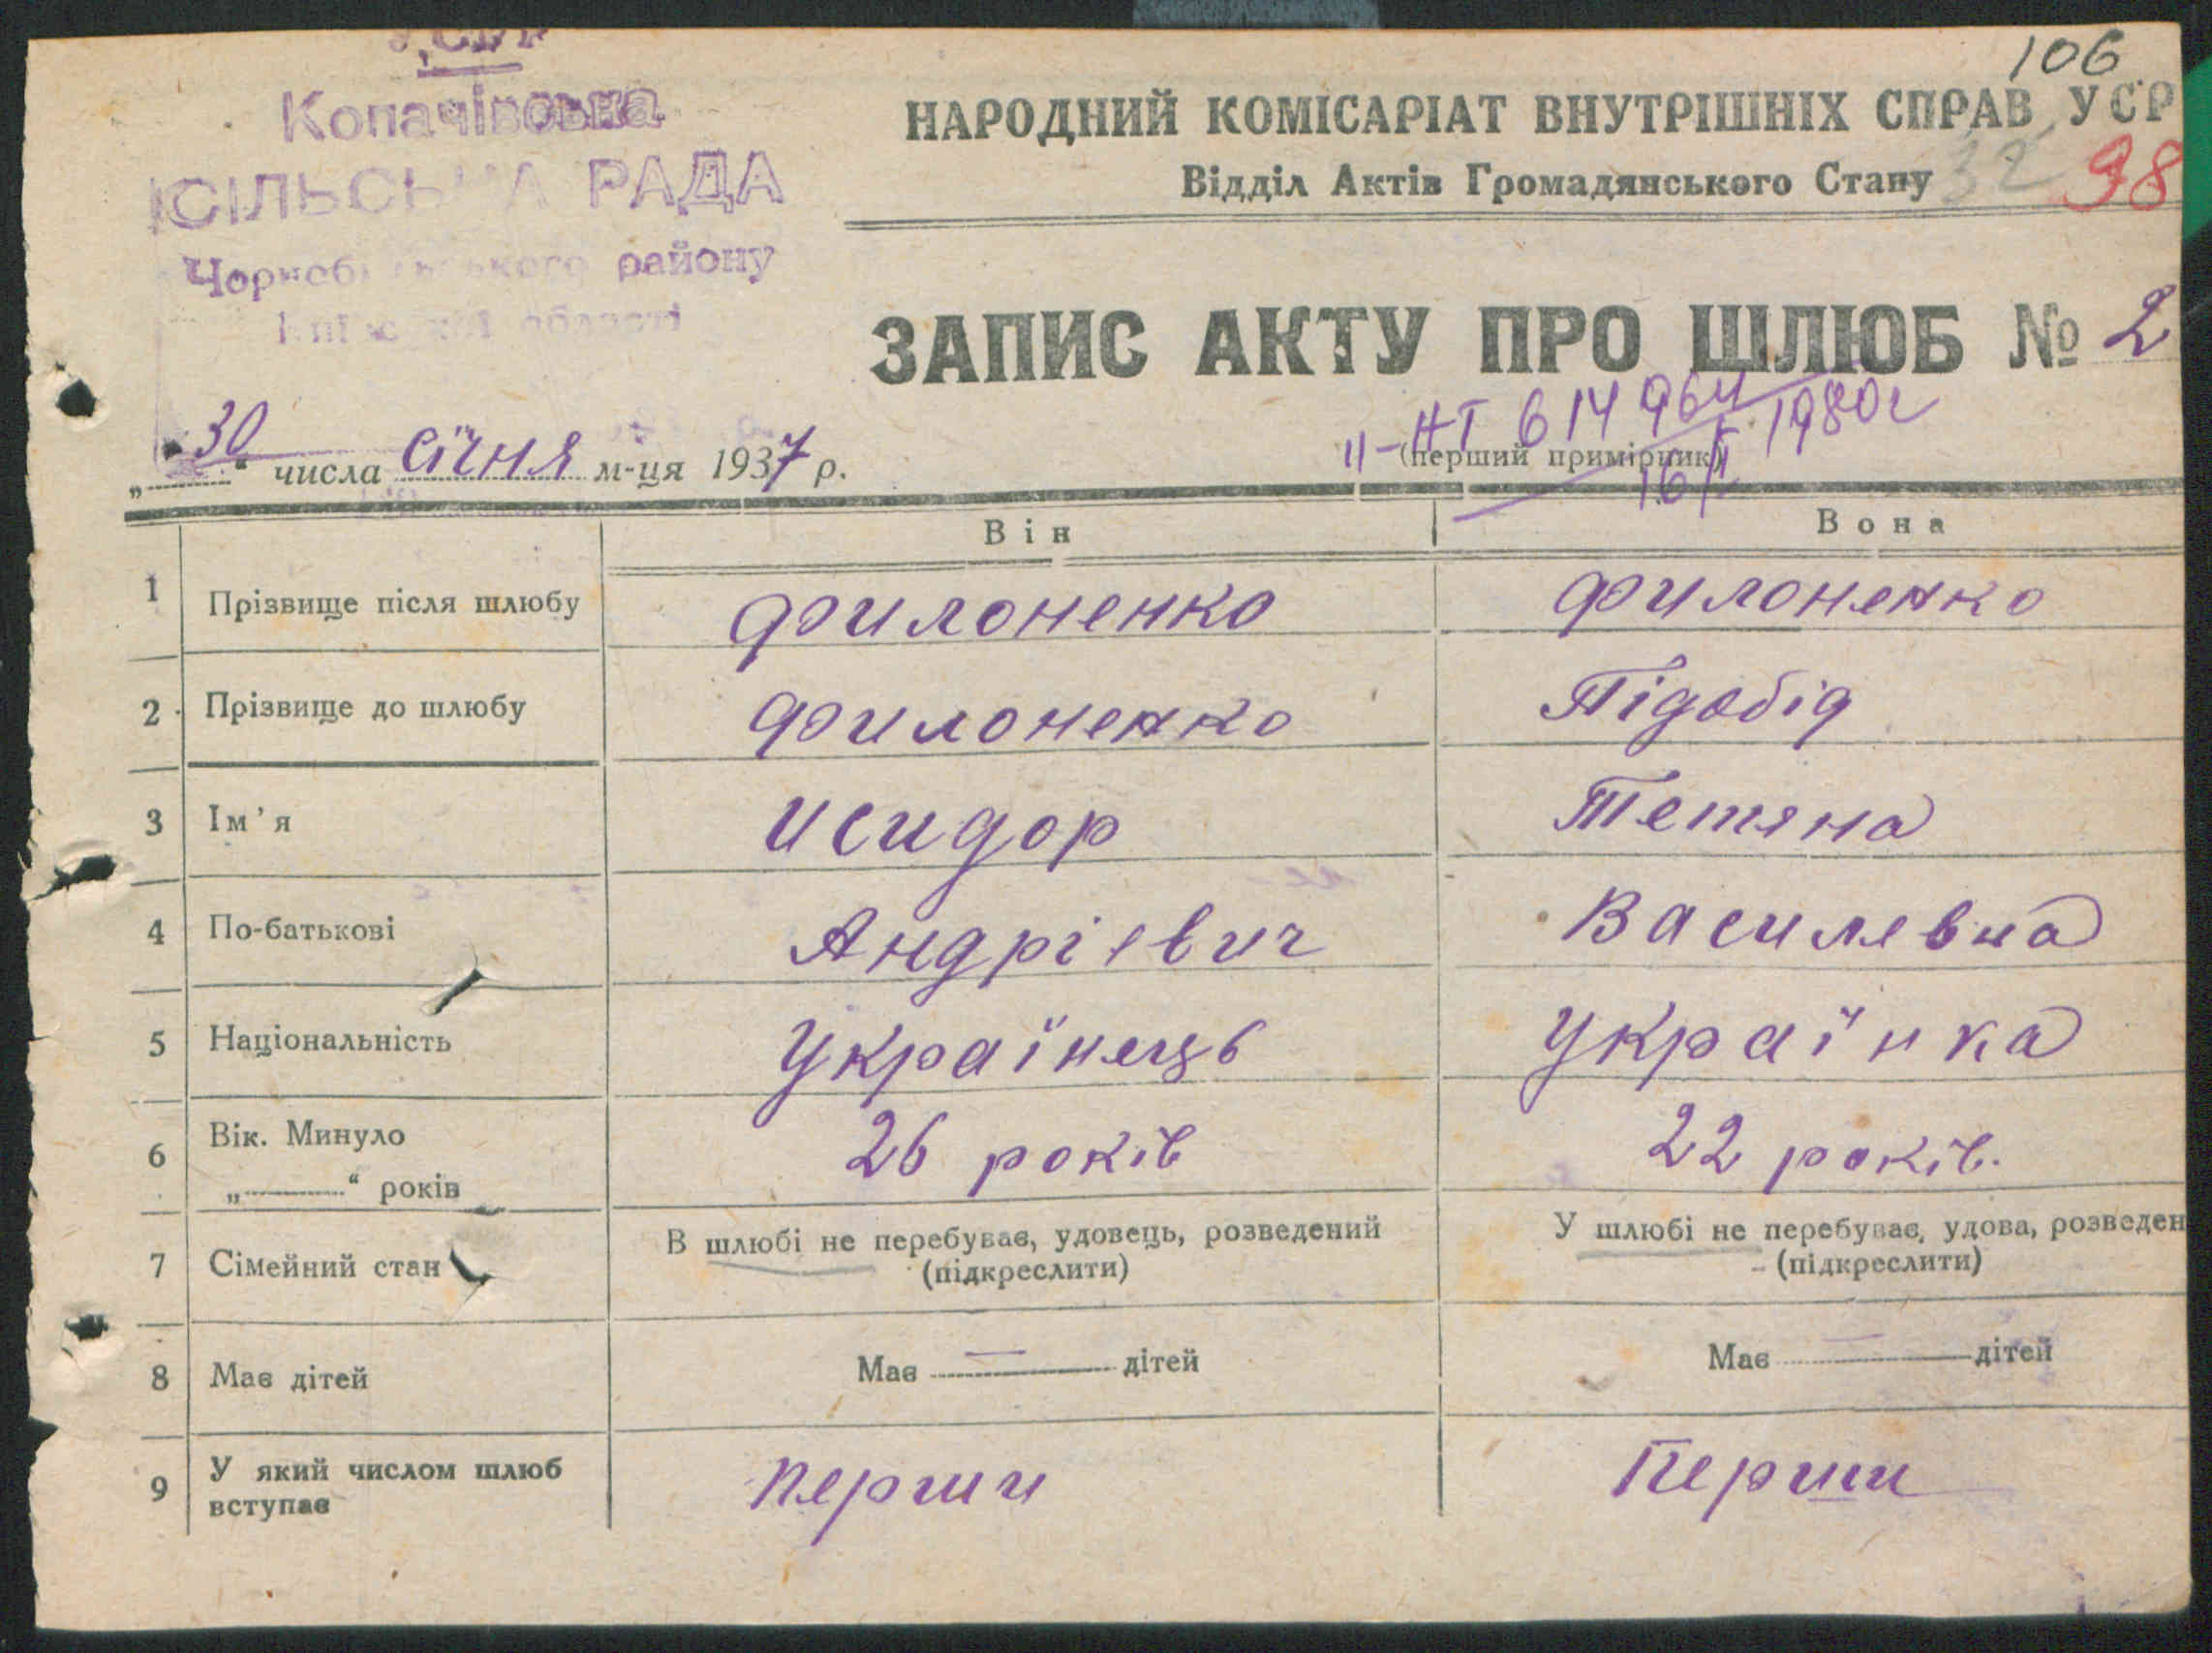 УСРР
Копачівська
СІЛЬСЬКА РАДА
Чорнобильського району
області
106
НАРОДНИЙ КОМІСАРІАТ ВНУТРІШНІХ СПРАВ УСР
Відділ Актів Громадянського Стану 32 98
ЗАПИС АКТУ ПРО ШЛЮБ № 2
II-НТ 614964 1980г
(перший примірник)
16/I
„30“ числа січня м-ця 1937 р.
Він Вона
1 Прізвище після шлюбу Филоненко Филоненко
2 Прізвище до шлюбу Филоненко Підобід
3 Ім'я Исидор Тетяна
4 По-батькові Андрієвич Василевна
5 Національність Українець Українка
6 Вік. Минуло
„——“ років 26 років 22 років.
7 Сімейний стан В шлюбі не перебуває, удовець, розведений У шлюбі не перебуває, удова, розведен
(підкреслити) (підкреслити)
8 Має дітей Має — дітей Має — дітей
9 У який числом шлюб
вступає перши Перши